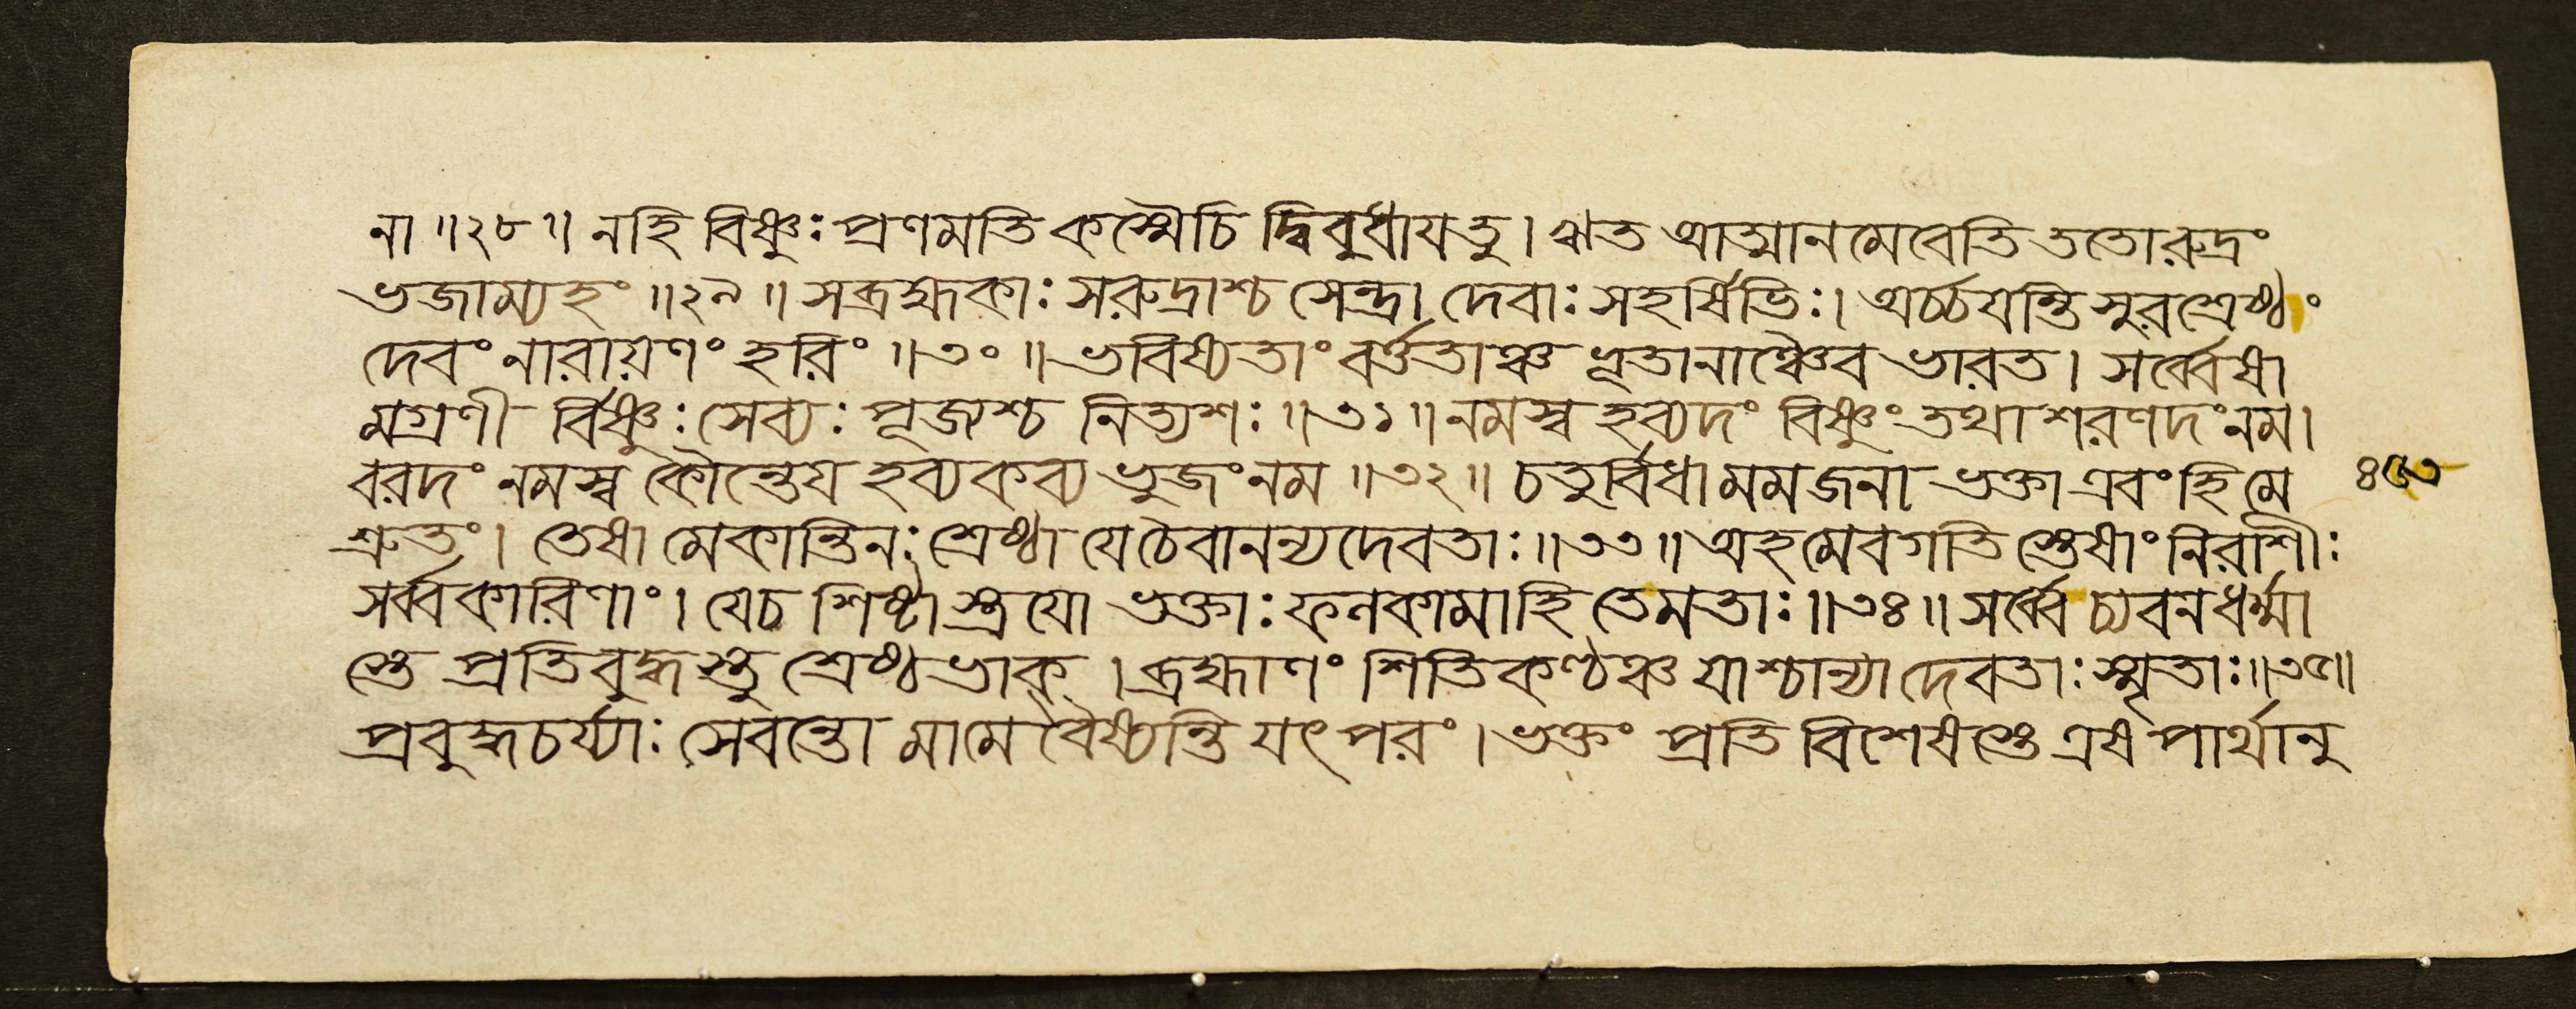 না ॥২৮॥ নহি বিষ্ণুঃ প্রণমতি কস্মৈচি দ্বিবুধায়তু। ঋত আত্মানমেবেতি ততোরুদ্রং
ভজাম্যহং ॥২৯॥ সব্রহ্মকাঃ সরুদ্রাশ্চ সেন্দ্রা দেবাঃ সহর্ষিভিঃ। অর্চ্চয়ন্তি সুরশ্রেষ্ঠং
দেবং নারায়ণং হরিং ॥৩০॥ ভবিষ্যতাং বর্ত্ততাঞ্চ ভূতানাঞ্চৈব ভারত। সর্ব্বেষা
মগ্রণী র্বিষ্ণুঃ সেব্যঃ পূজ্যশ্চ নিত্যশঃ ॥৩১॥ নমস্ব হব্যদং বিষ্ণুং তথা শরণদং নম।
বরদং নমস্ব কৌন্তেয় হব্যকব্য ভুজং নম ॥৩২॥ চতুর্বিধা মম জনা ভক্তা এবং হি মে
৪৫৩
শ্রুতং। তেষা মেকান্তিনঃ শ্রেষ্ঠা যে চৈবানন্যদেবতাঃ ॥৩৩॥ অহমেব গতি স্তেষাং নিরাশীঃ
সর্ব্বকারিণাং। যেচ শিষ্টা স্ত্রয়ো ভক্তাঃ ফলকামাহি তে মতাঃ ॥৩৪॥ সর্ব্বে চ্যবনধর্ম্মা
স্তে প্রতিবুদ্ধস্তু শ্রেষ্ঠভাক্। ব্রহ্মাণং শিতিকণ্ঠঞ্চ যাশ্চান্যা দেবতাঃ স্মৃতাঃ ॥৩৫॥
প্রবুদ্ধচর্য্যাঃ সেবন্তো মামেবৈষ্যন্তি যৎ পরং। ভক্তং প্রতি বিশেষস্তে এষ পার্থানু